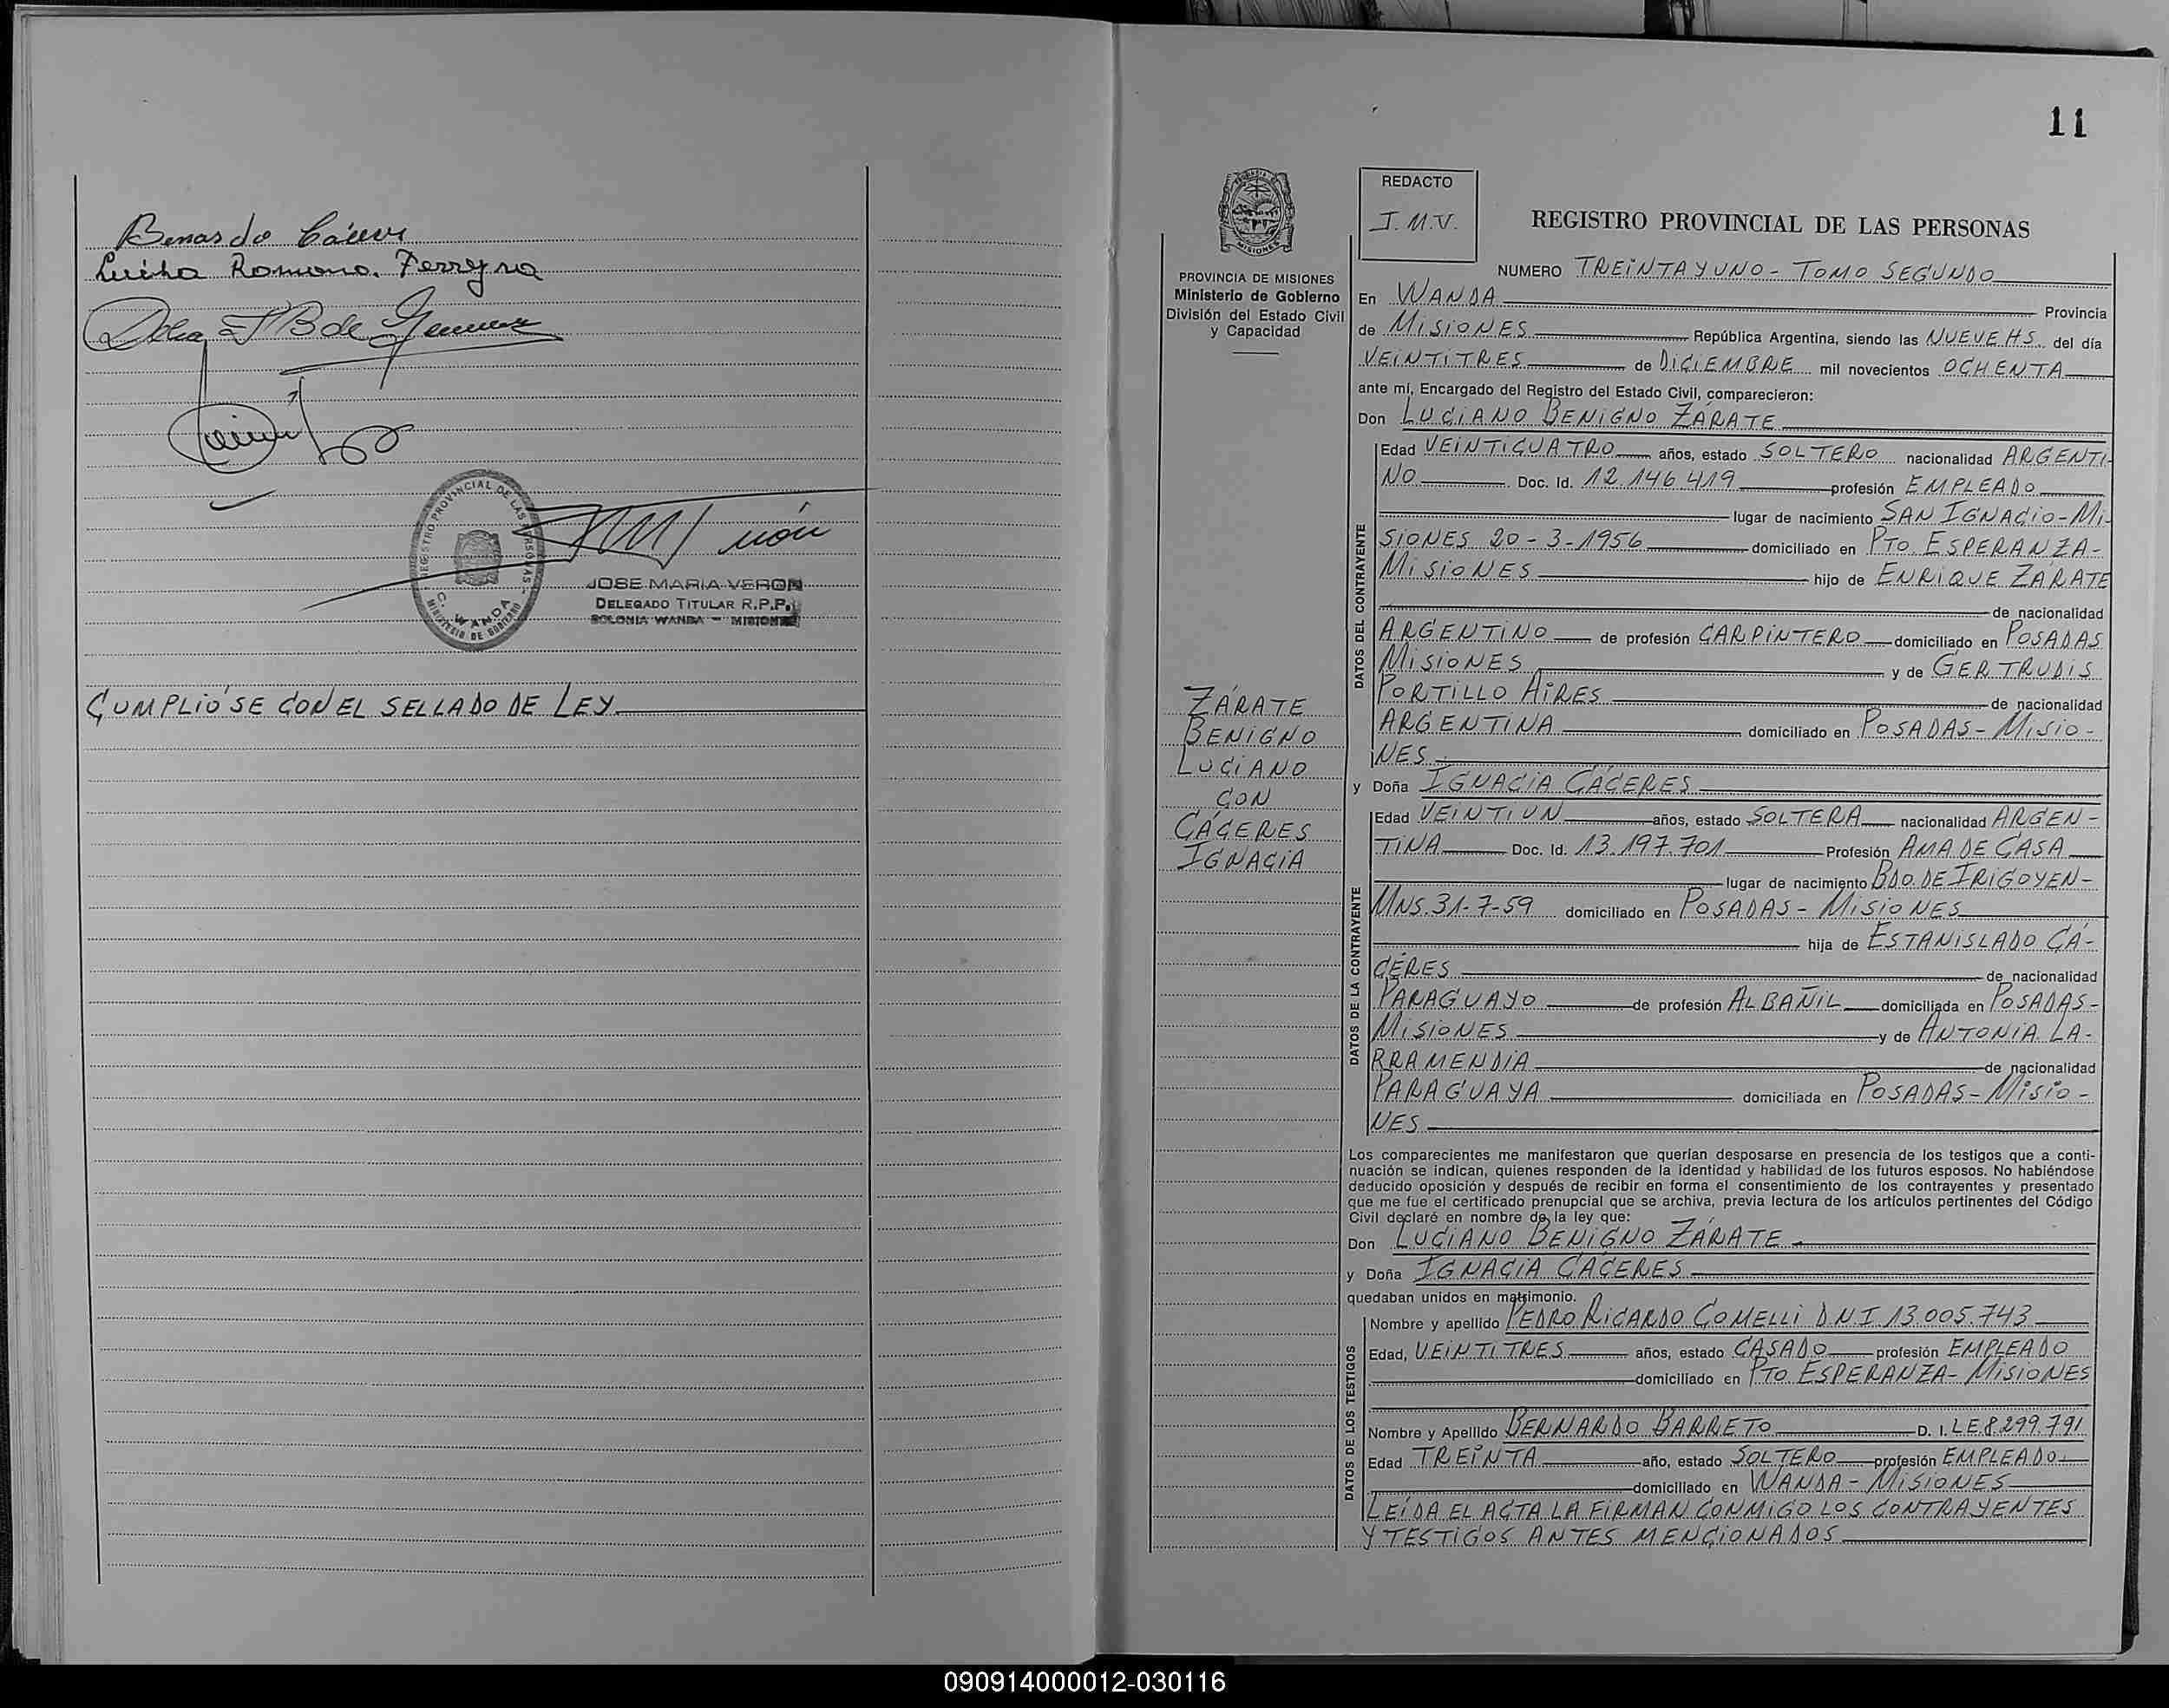 Luisa Romona Ferreyra
REGISTRO PROVINCIAL DE LAS PERSONAS
C. WANDA
MINISTERIO DE GOBIERNO
JOSE MARIA VERON
DELEGADO TITULAR R.P.P.
COLONIA WANDA - MISIONES
CUMPLIÓSE CON EL SELLADO DE LEY
11
PROVINCIA DE MISIONES
Ministerio de Gobierno
División del Estado Civil
y Capacidad
ZÁRATE
BENIGNO
LUCIANO
CON
CÁCERES
IGNACIA
REDACTO
J.M.V.
REGISTRO PROVINCIAL DE LAS PERSONAS
NUMERO TREINTA Y UNO - TOMO SEGUNDO
En WANDA Provincia
de MISIONES República Argentina, siendo las NUEVE HS. del día
VEINTITRES de DICIEMBRE mil novecientos OCHENTA
ante mí, Encargado del Registro del Estado Civil, comparecieron:
Don LUCIANO BENIGNO ZÁRATE
DATOS DEL CONTRAYENTE
Edad VEINTICUATRO años, estado SOLTERO nacionalidad ARGENTI-
NO Doc. Id. 12.146.419 profesión EMPLEADO
lugar de nacimiento SAN IGNACIO-MI-
SIONES 20-3-1956 domiciliado en PTO. ESPERANZA-
MISIONES hijo de ENRIQUE ZÁRATE
de nacionalidad
ARGENTINO de profesión CARPINTERO domiciliado en POSADAS
MISIONES y de GERTRUDIS
PORTILLO AIRES de nacionalidad
ARGENTINA domiciliado en POSADAS-MISIO-
NES.
y Doña IGNACIA CÁCERES
DATOS DE LA CONTRAYENTE
Edad VEINTIUN años, estado SOLTERA nacionalidad ARGEN-
TINA Doc. Id. 13.197.701 Profesión AMA DE CASA
lugar de nacimiento BDO. DE IRIGOYEN-
MNS. 31-7-59 domiciliado en POSADAS - MISIONES
hija de ESTANISLADO CÁ-
CERES de nacionalidad
PARAGUAYO de profesión ALBAÑIL domiciliada en POSADAS-
MISIONES y de ANTONIA LA-
RRAMENDIA de nacionalidad
PARAGUAYA domiciliada en POSADAS-MISIO-
NES
Los comparecientes me manifestaron que querían desposarse en presencia de los testigos que a conti-
nuación se indican, quienes responden de la identidad y habilidad de los futuros esposos. No habiéndose
deducido oposición y después de recibir en forma el consentimiento de los contrayentes y presentado
que me fue el certificado prenupcial que se archiva, previa lectura de los artículos pertinentes del Código
Civil declaré en nombre de la ley que:
Don LUCIANO BENIGNO ZÁRATE
y Doña IGNACIA CÁCERES
quedaban unidos en matrimonio.
DATOS DE LOS TESTIGOS
Nombre y apellido PEDRO RICARDO COMELLI DNI 13.005.743
Edad, VEINTITRES años, estado CASADO profesión EMPLEADO
domiciliado en PTO. ESPERANZA-MISIONES
Nombre y Apellido BERNARDO BARRETO D. I. LE. 8.299.791
Edad TREINTA año, estado SOLTERO profesión EMPLEADO
domiciliado en WANDA - MISIONES
LEÍDA EL ACTA LA FIRMAN CONMIGO LOS CONTRAYENTES
Y TESTIGOS ANTES MENCIONADOS
090914000012-030116